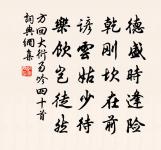 德盛時逢險
乾剛坎在前
諺雲姑少待
樂飲豈徒然
方回大衍易吟四十首
詞典網集